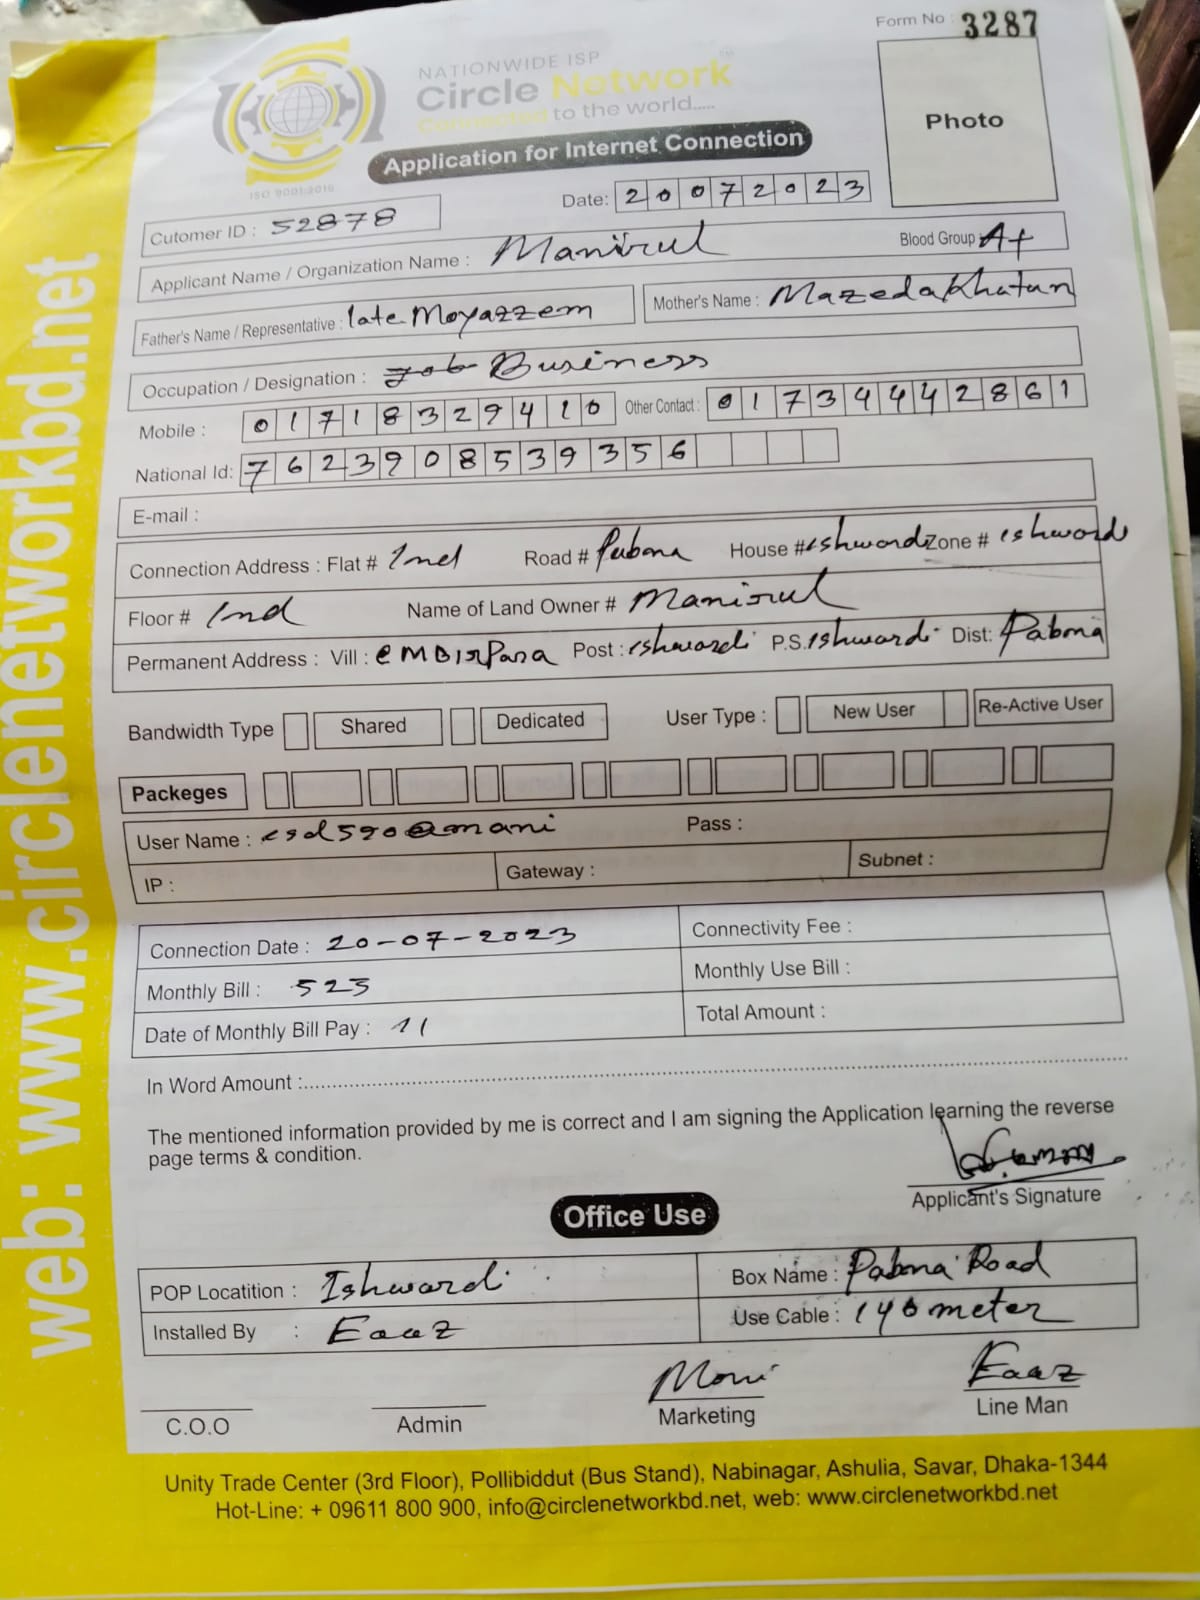 Form No : 3287
NATIONWIDE ISP
Circle Network
Connected to the world.....
ISO 9001:2015
Application for Internet Connection
Photo
Date: 20072023
Cutomer ID : 52878
Applicant Name / Organization Name : Manirul Blood Group: A+
Father's Name / Representative : late Moyazzem Mother's Name : Mazeda Khatun
Occupation / Designation : Job Business
Mobile : 01718329410 Other Contact : 01734442861
National Id: 7623908539356
E-mail :
Connection Address : Flat # 2nd Road # Pabona House # eshwardi Zone # eshwardi
Floor # 2nd Name of Land Owner # Manirul
Permanent Address : Vill : Post : eshwardi P.S. Ishwardi Dist: Pabona
Bandwidth Type Shared Dedicated User Type : New User Re-Active User
Packeges
User Name : esd590@mani Pass :
IP : Gateway : Subnet :
Connection Date : 20-07-2023 Connectivity Fee :
Monthly Bill : 523 Monthly Use Bill :
Date of Monthly Bill Pay : 11 Total Amount :
In Word Amount :
The mentioned information provided by me is correct and I am signing the Application learning the reverse
page terms & condition.
Applicant's Signature
Office Use
POP Locatition : Ishwardi Box Name : Pabona Road
Installed By : Eaaz Use Cable : 140 meter
C.O.O Admin Moni Marketing Eaaz Line Man
Unity Trade Center (3rd Floor), Pollibiddut (Bus Stand), Nabinagar, Ashulia, Savar, Dhaka-1344
Hot-Line: + 09611 800 900, info@circlenetworkbd.net, web: www.circlenetworkbd.net
web: www.circlenetworkbd.net